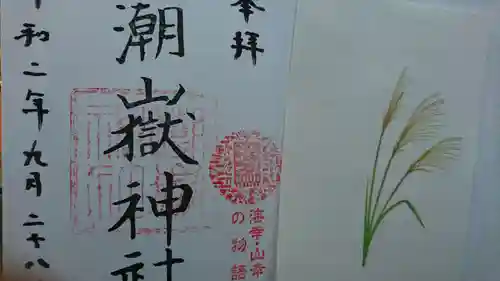 奉拝
潮嶽神社
令和二年九月二十八
海幸・山幸
の物語